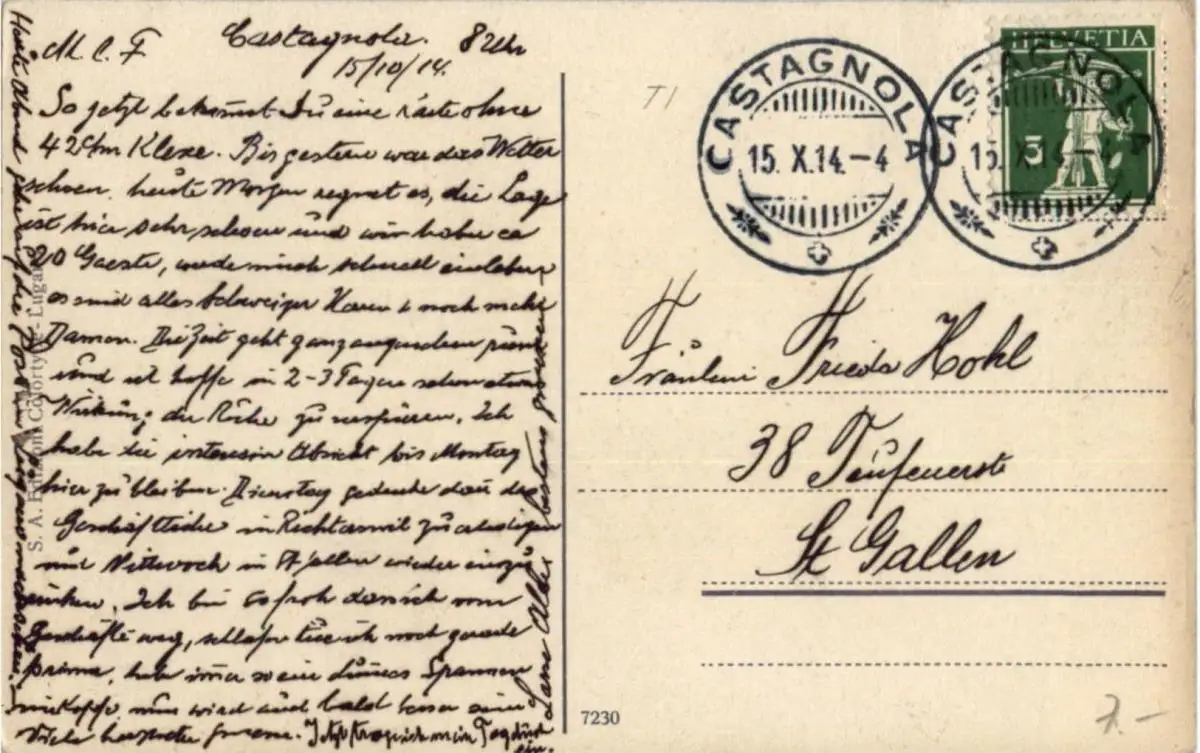 M. L. F Castagnola. 8 Uhr
15/10/14.
So jetzt bekommst Du eine Karte ohne
42c/m Klexe. Bis gestern war das Wetter
schoen, heute Morgen regnet es, die Lage
ist hier sehr schoen und wir haben ca
20 Gaeste, werde mich schnell einleben,
es sind alles Schweizer Herren & noch mehr
Damen. Die Zeit geht ganz
und ich hoffe in 2-3 Tagen schon etwas
Wirkung der Ruhe zu verspüren. Ich
habe die Absicht bis Montag
hier zu bleiben. Dienstag gedenke dan das
Geschäftliche in Richterswil zu erledigen
und Mittwoch in St Gallen wieder einzu
rücken. Ich bin so froh dass ich vom
Geschäfte weg, schlafen tue ich noch gerade
prima, habe immer so ein Spannen
im Kopfe, nun wird auch bald besser sein
Jetzt trage ich mein Tagebuch
ein.
Heute Abend gehe ich auf die Post in Lugano
Lasse Alle bestens grüssen
S. A. Lugano
CASTAGNOLA
15. X.14.-4
CASTAGNOLA
15. X.14.-4
HELVETIA
5
T1
Fräulein Frieda Hohl
38 Teufenerstr
St Gallen
7230
7.-